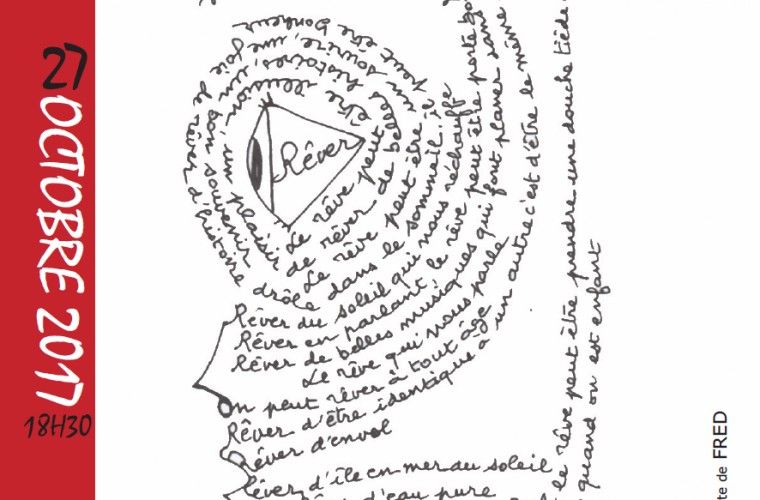 27
OCTOBRE 2017
18H30
Rêver
Le rêve peut être illusion
un plaisir
de rêver de belles histoires
un bon souvenir
Le rêve peut être
un sourire, une joie
de rêver d'histoire
drôle dans le sommeil
Rêver du soleil qui nous réchauffe
Rêver en parlant le rêve peut être perte
Rêver de belles musiques qui font planer sans
Le rêve qui nous parle
On peut rêver à tout âge
Rêver d'être identique à un autre c'est d'être le même
Rêver d'envol
Rêver d'île en mer au soleil
d'eau pure
le rêve peut être prendre une douche tiède
quand on est enfant
te de FRED